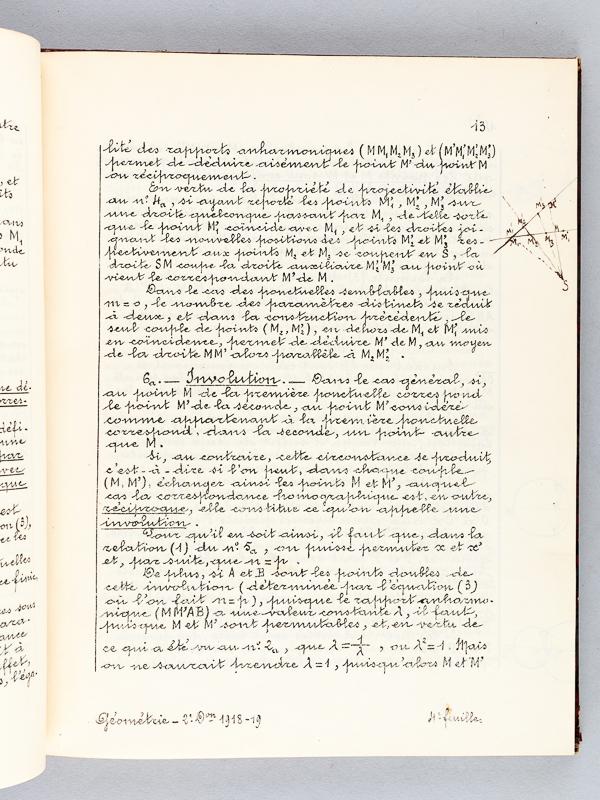 13
lité des rapports anharmoniques (MM₁M₂M₃) et (M'M'₁M'₂M'₃)
permet de déduire aisément le point M' du point M
ou réciproquement.
En vertu de la propriété de projectivité établie
au n° 4ₐ, si ayant reporté les points M'₁, M'₂, M'₃ sur
une droite quelconque passant par M₁, de telle sorte
que le point M'₁ coïncide avec M₁, et si les droites joi-
gnant les nouvelles positions des points M'₂ et M'₃ res-
pectivement aux points M₂ et M₃ se coupent en S, la
droite SM coupe la droite auxiliaire M'₂M'₃ au point où
vient le correspondant M' de M.
Dans le cas des ponctuelles semblables, puisque
m = 0, le nombre des paramètres distincts se réduit
à deux, et dans la construction précédente, le
seul couple de points (M₂, M'₂), en dehors de M₁ et M'₁ mis
en coïncidence, permet de déduire M' de M, au moyen
de la droite MM' alors parallèle à M₂M'₂.
6ₐ. — Involution. — Dans le cas général, si,
au point M de la première ponctuelle correspond
le point M' de la seconde, au point M' considéré
comme appartenant à la première ponctuelle
correspond, dans la seconde, un point autre
que M.
Si, au contraire, cette circonstance se produit,
c'est-à-dire si l'on peut, dans chaque couple
(M, M'), échanger ainsi les points M et M', auquel
cas la correspondance homographique est, en outre,
réciproque, elle constitue ce qu'on appelle une
involution.
Pour qu'il en soit ainsi, il faut que, dans la
relation (1) du n° 5ₐ, on puisse permuter x et x'
et, par suite, que n = p.
De plus, si A et B sont les points doubles de
cette involution (déterminée par l'équation (3)
où l'on fait n = p), puisque le rapport anharmo-
nique (MM'AB) a une valeur constante λ, il faut,
puisque M et M' sont permutables, et, en vertu de
ce qui a été vu au n° 2ₐ, que λ = 1/λ, ou λ² = 1. Mais
on ne saurait prendre λ = 1, puisqu'alors M et M'
Géométrie — 2ᵉ Dᵒⁿ 1918-19
4ᵉ feuille.